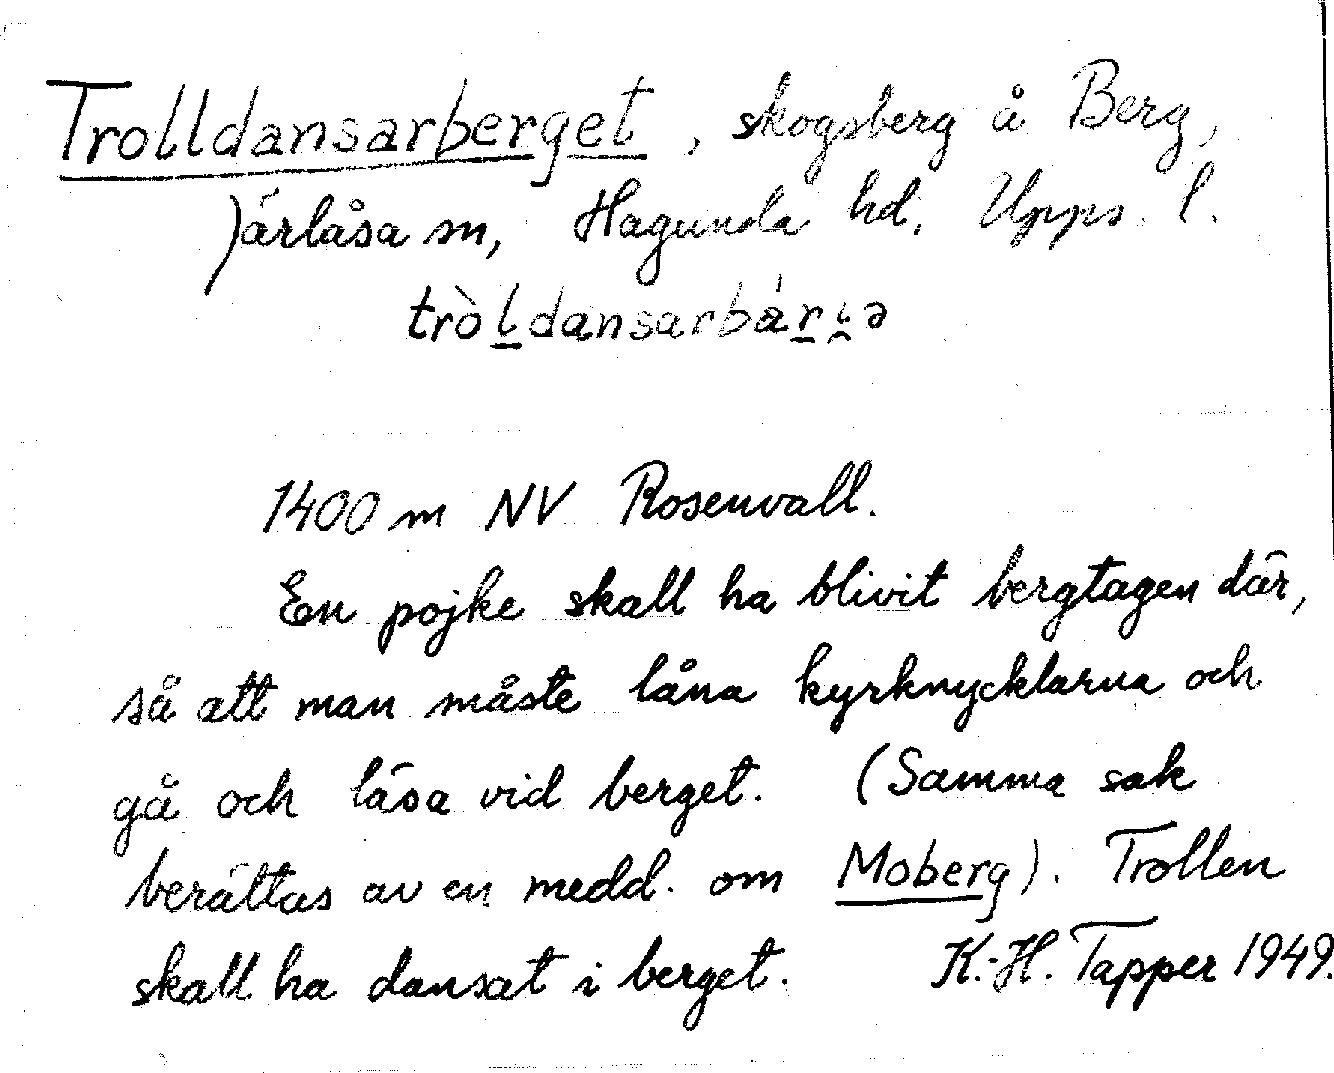 Trolldansarberget, skogsberg å Berg,
Järlåsa sn, Hagunda hd. Upps. l.
1400 m NV Rosenvall.
En pojke skall ha blivit bergtagen där,
så att man måste låna kyrknycklarna och
gå och läsa vid berget. (Samma sak
berättas av en medd. om Moberg). Trollen
skall ha dansat i berget. K.-H. Tapper 1949.